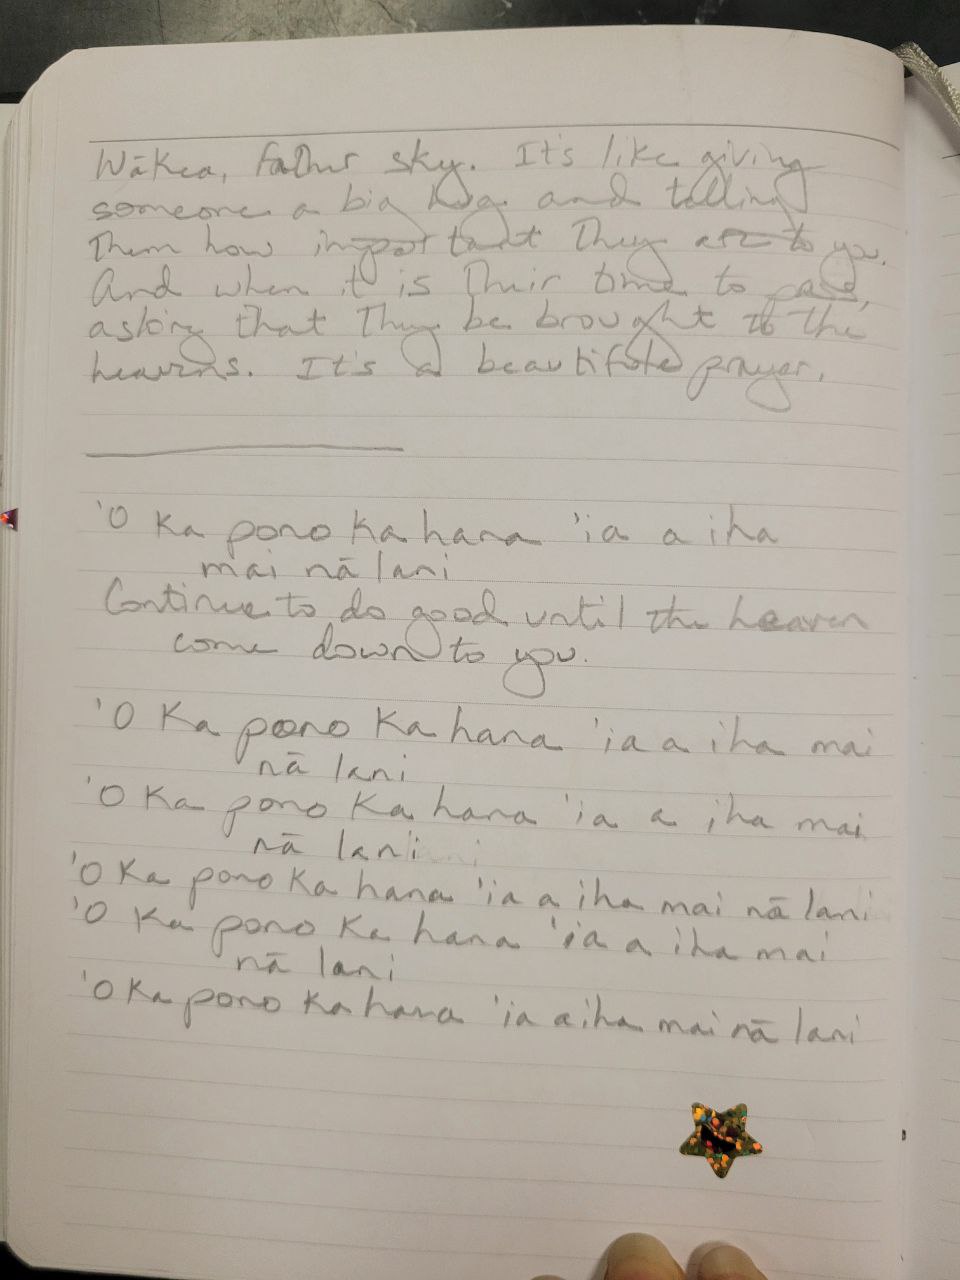 Wākea, father sky. It's like giving
someone a big hug and telling
them how important they are to you.
And when it is their time to pass,
asking that they be brought to the
heavens. It's a beautiful prayer.
'O Ka pono Ka hana 'ia a iha
mai nā lani
Continue to do good until the heaven
come down to you.
'O Ka pono Ka hana 'ia a iha mai
nā lani
'O Ka pono Ka hana 'ia a iha mai
nā lani
'O Ka pono Ka hana 'ia a iha mai nā lani
'O Ka pono Ka hana 'ia a iha mai
nā lani
'O Ka pono Ka hana 'ia a iha mai nā lani